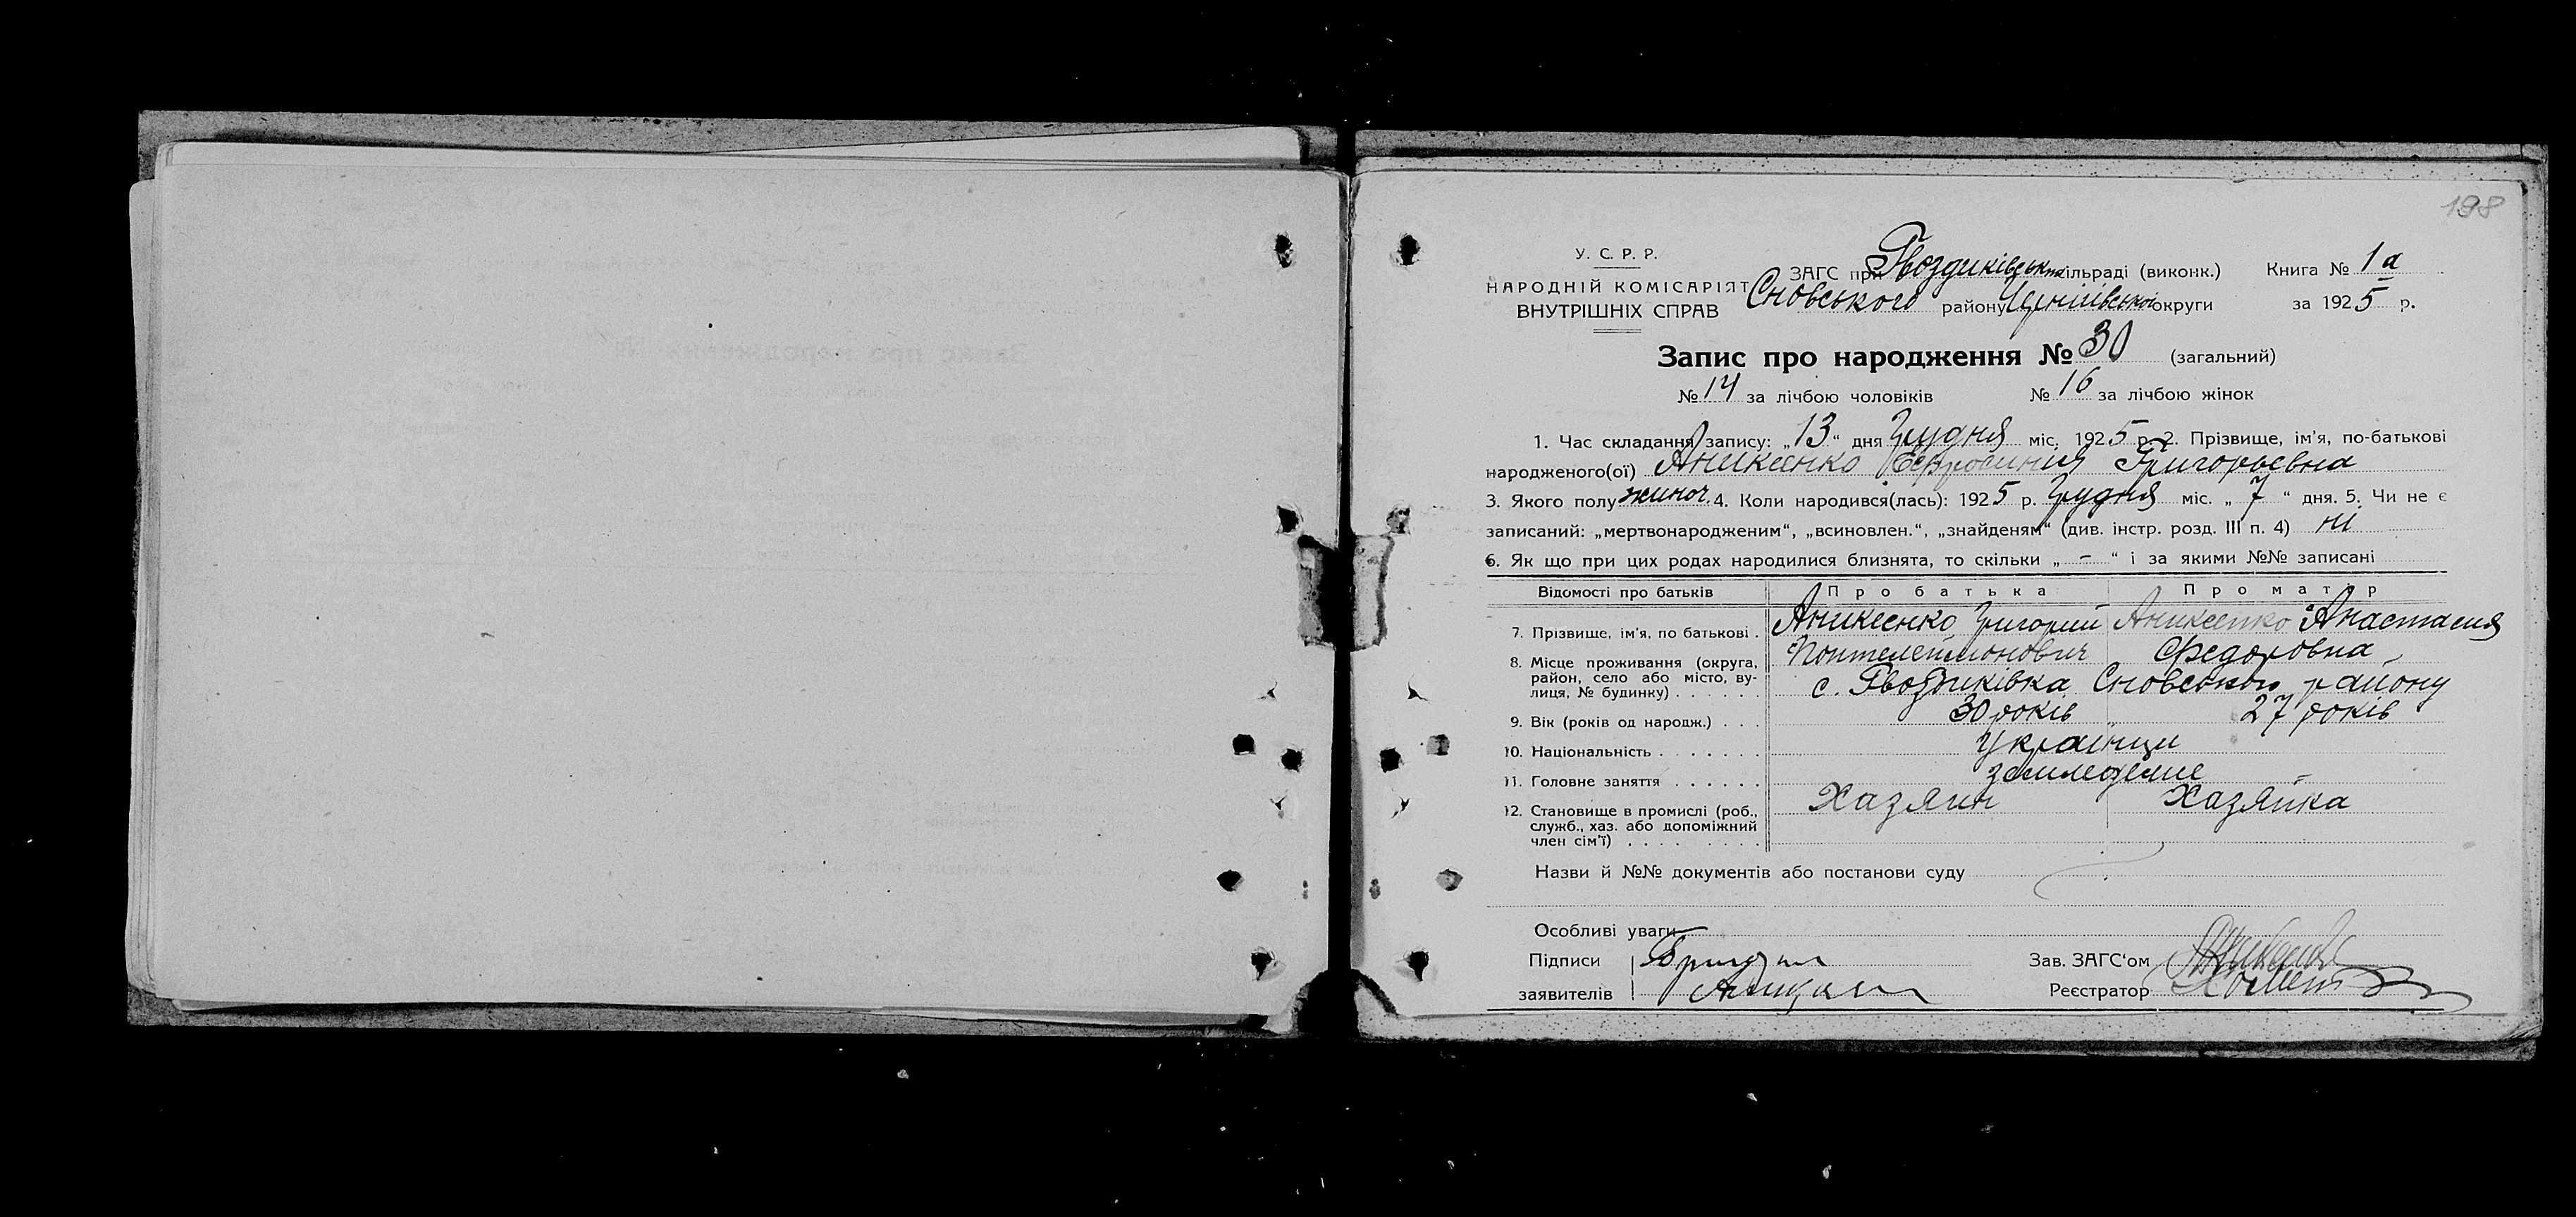 198
У. С. Р. Р.
НАРОДНІЙ КОМІСАРІЯТ
ВНУТРІШНІХ СПРАВ
ЗАГС при Гвоздиківськ сільраді (виконк.) Книга № 1а
Сновського району Чернігівської округи за 1925 р.
Запис про народження № 30 (загальний)
№ 14 за лічбою чоловіків № 16 за лічбою жінок
1. Час складання запису: „13“ дня Грудня міс. 1925 р. 2. Прізвище, ім’я, по-батькові
народженого(ої) Аникеенко Ефросиния Григорьевна
3. Якого полу жиноч. 4. Коли народився(лась): 1925 р. Грудня міс. „7“ дня. 5. Чи не є
записаний: „мертвонародженим“, „всиновлен.“, „знайденям“ (див. інстр. розд. III п. 4) ні
6. Як що при цих родах народилися близнята, то скільки „ – “ і за якими №№ записані
Відомості про батьків Про батька Про матір
7. Прізвище, ім’я, по батькові . Аникеенко Григорий Аникеенко Анастасия
Понтелеймонович Федоровна
8. Місце проживання (округа, район, село або місто, вулиця, № будинку) . . . . . . с. Гвоздиківка Сновського району
9. Вік (років од народж.) . . . 30 років 27 років
10. Національність . . . . . . . Українци
11. Головне заняття . . . . . . земледелие –
12. Становище в промислі (роб., служб., хаз. або допоміжний член сім’ї) . . . . . . . . . Хазяин Хазяйка
Назви й №№ документів або постанови суду
Особливі уваги
Підписи Зав. ЗАГС‘ом
заявителів Реєстратор